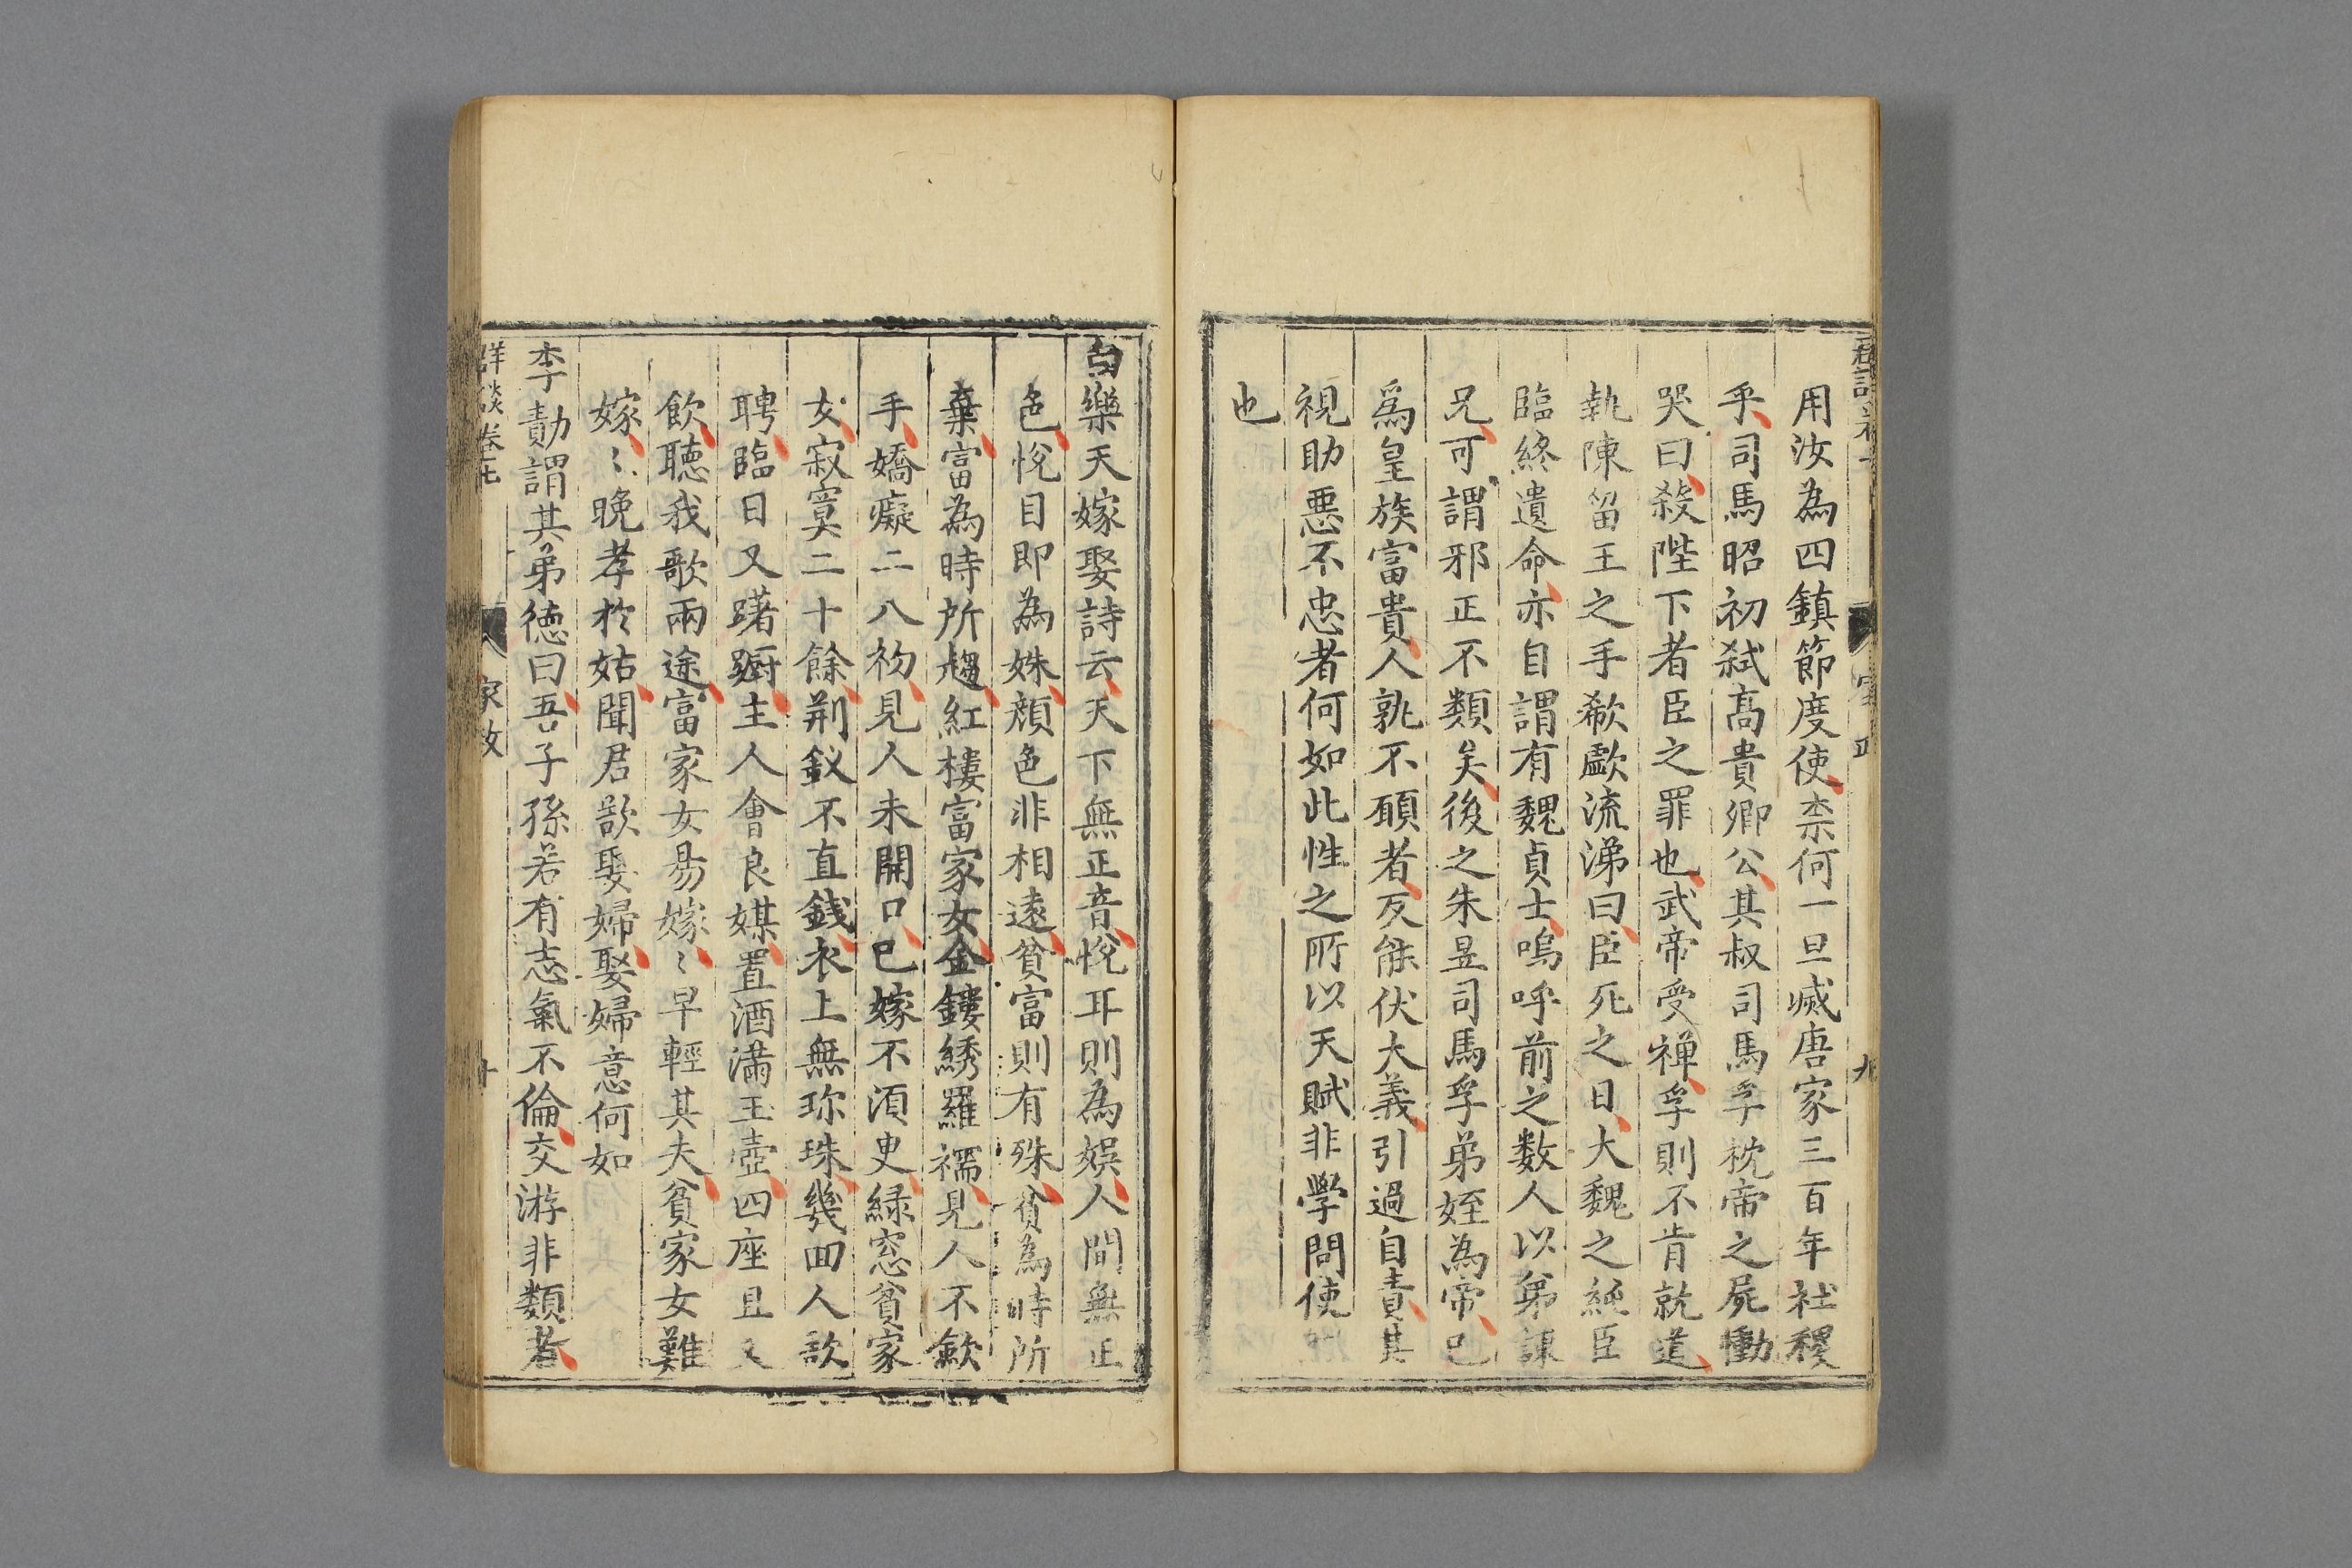 用汝為四鎮節度使柰何一旦滅唐家三百年社稷
乎司馬昭初弑髙貴卿公其叔司馬孚枕帝之屍慟
哭曰殺陛下者臣之罪也武帝受禅孚則不肯就道
執陳留王之手欷歔流涕曰臣死之日大魏之純臣
臨終遺命亦自謂有魏貞士嗚呼前之数人以弟諫
兄可謂邪正不類矣後之朱昱司馬孚弟姪為帝已
爲皇族富貴人孰不願者反能伏大義引過自責其
視助悪不忠者何如此性之所以天賦非學問使
也
白樂天嫁娶詩云天下無正音悅耳則為娛人間無正
色悅目即為姝顔色非相遠貧富則有殊貧為時所
棄富為時所趨紅樓富家女金鏤綉羅襦見人不歛
手嬌癡二八初見人未開口已嫁不湏臾緑窓貧家
女寂寞二十餘荆釵不直錢衣上無珎珠幾回人欲
聘臨日又躇蹰主人會良媒置酒滿玉壺四座且
飲聴我歌兩途富家女昜嫁〻早輕其夫貧家女難
嫁〻晚孝於姑聞君欲娶婦娶婦意何如
李勣謂其弟徳曰吾子孫若有志氣不倫交游非類者
詳談卷七 家 十